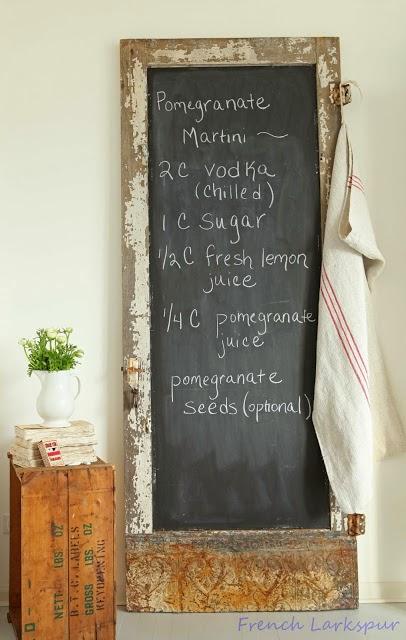 Pomegranate
Martini ~
2 C vodka
(chilled)
1 C Sugar
1/2 C fresh lemon
juice
1/4 C pomegranate
juice
pomegranate
seeds (optional)
NETT LBS. OZ
D.T.C. LABELS
GROSS LBS OZ
French Larkspur